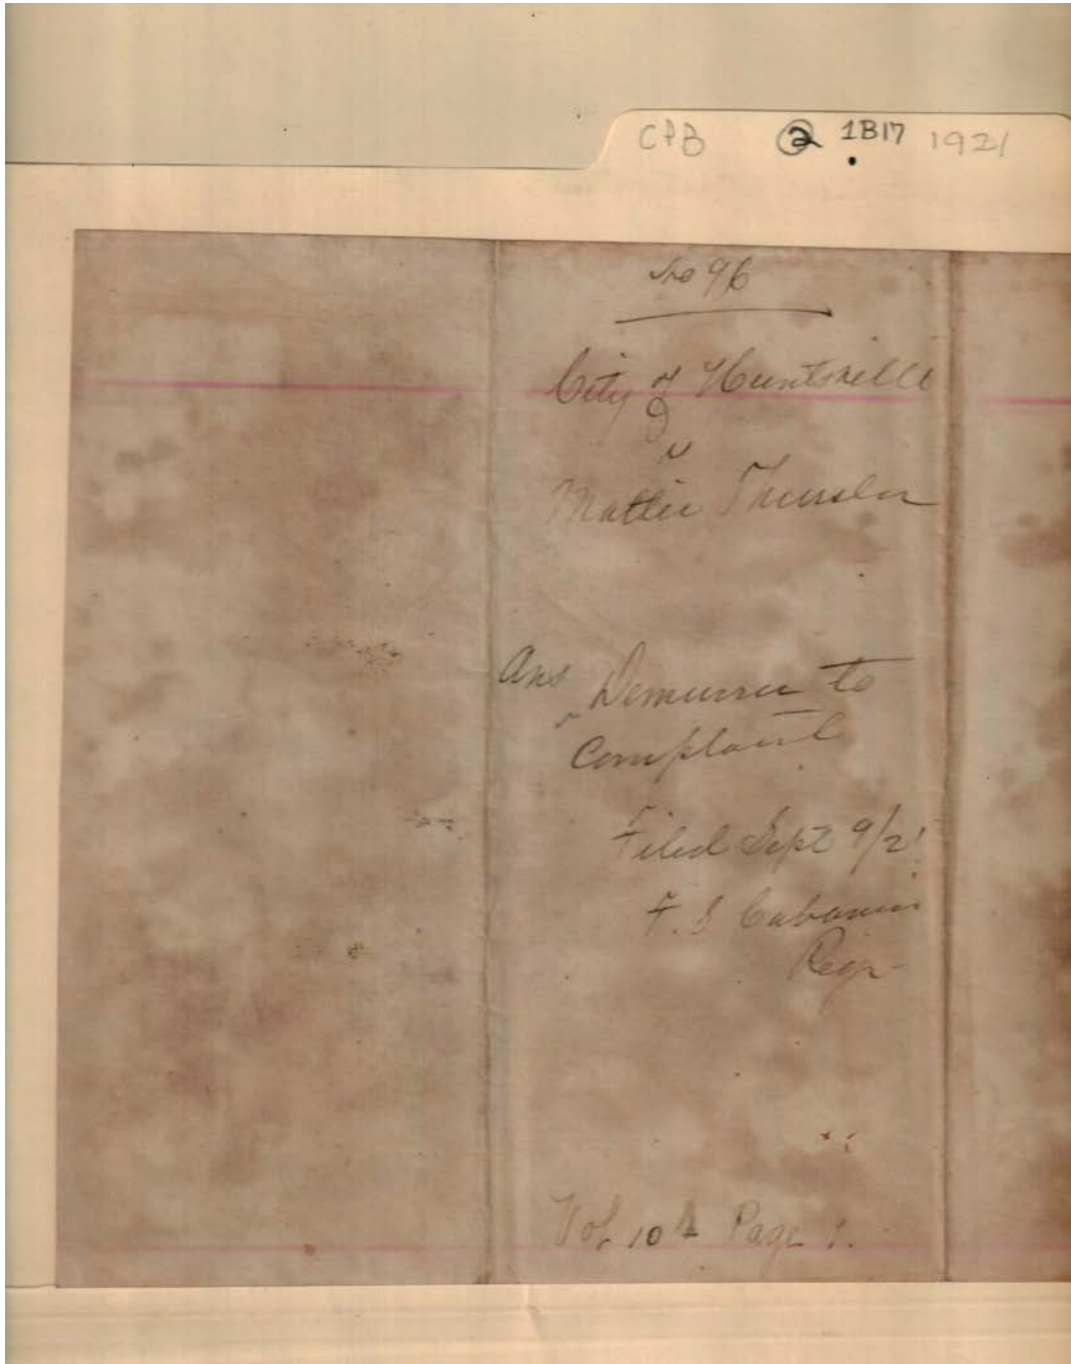 CPB 2 1B17 1921
No 96
City of Huntsville
v
Mattie
Ans Demurrer to
Complaint
Filed Sept 9/21
F. S Cabaniss
Regr
Vol 10 Page 1.